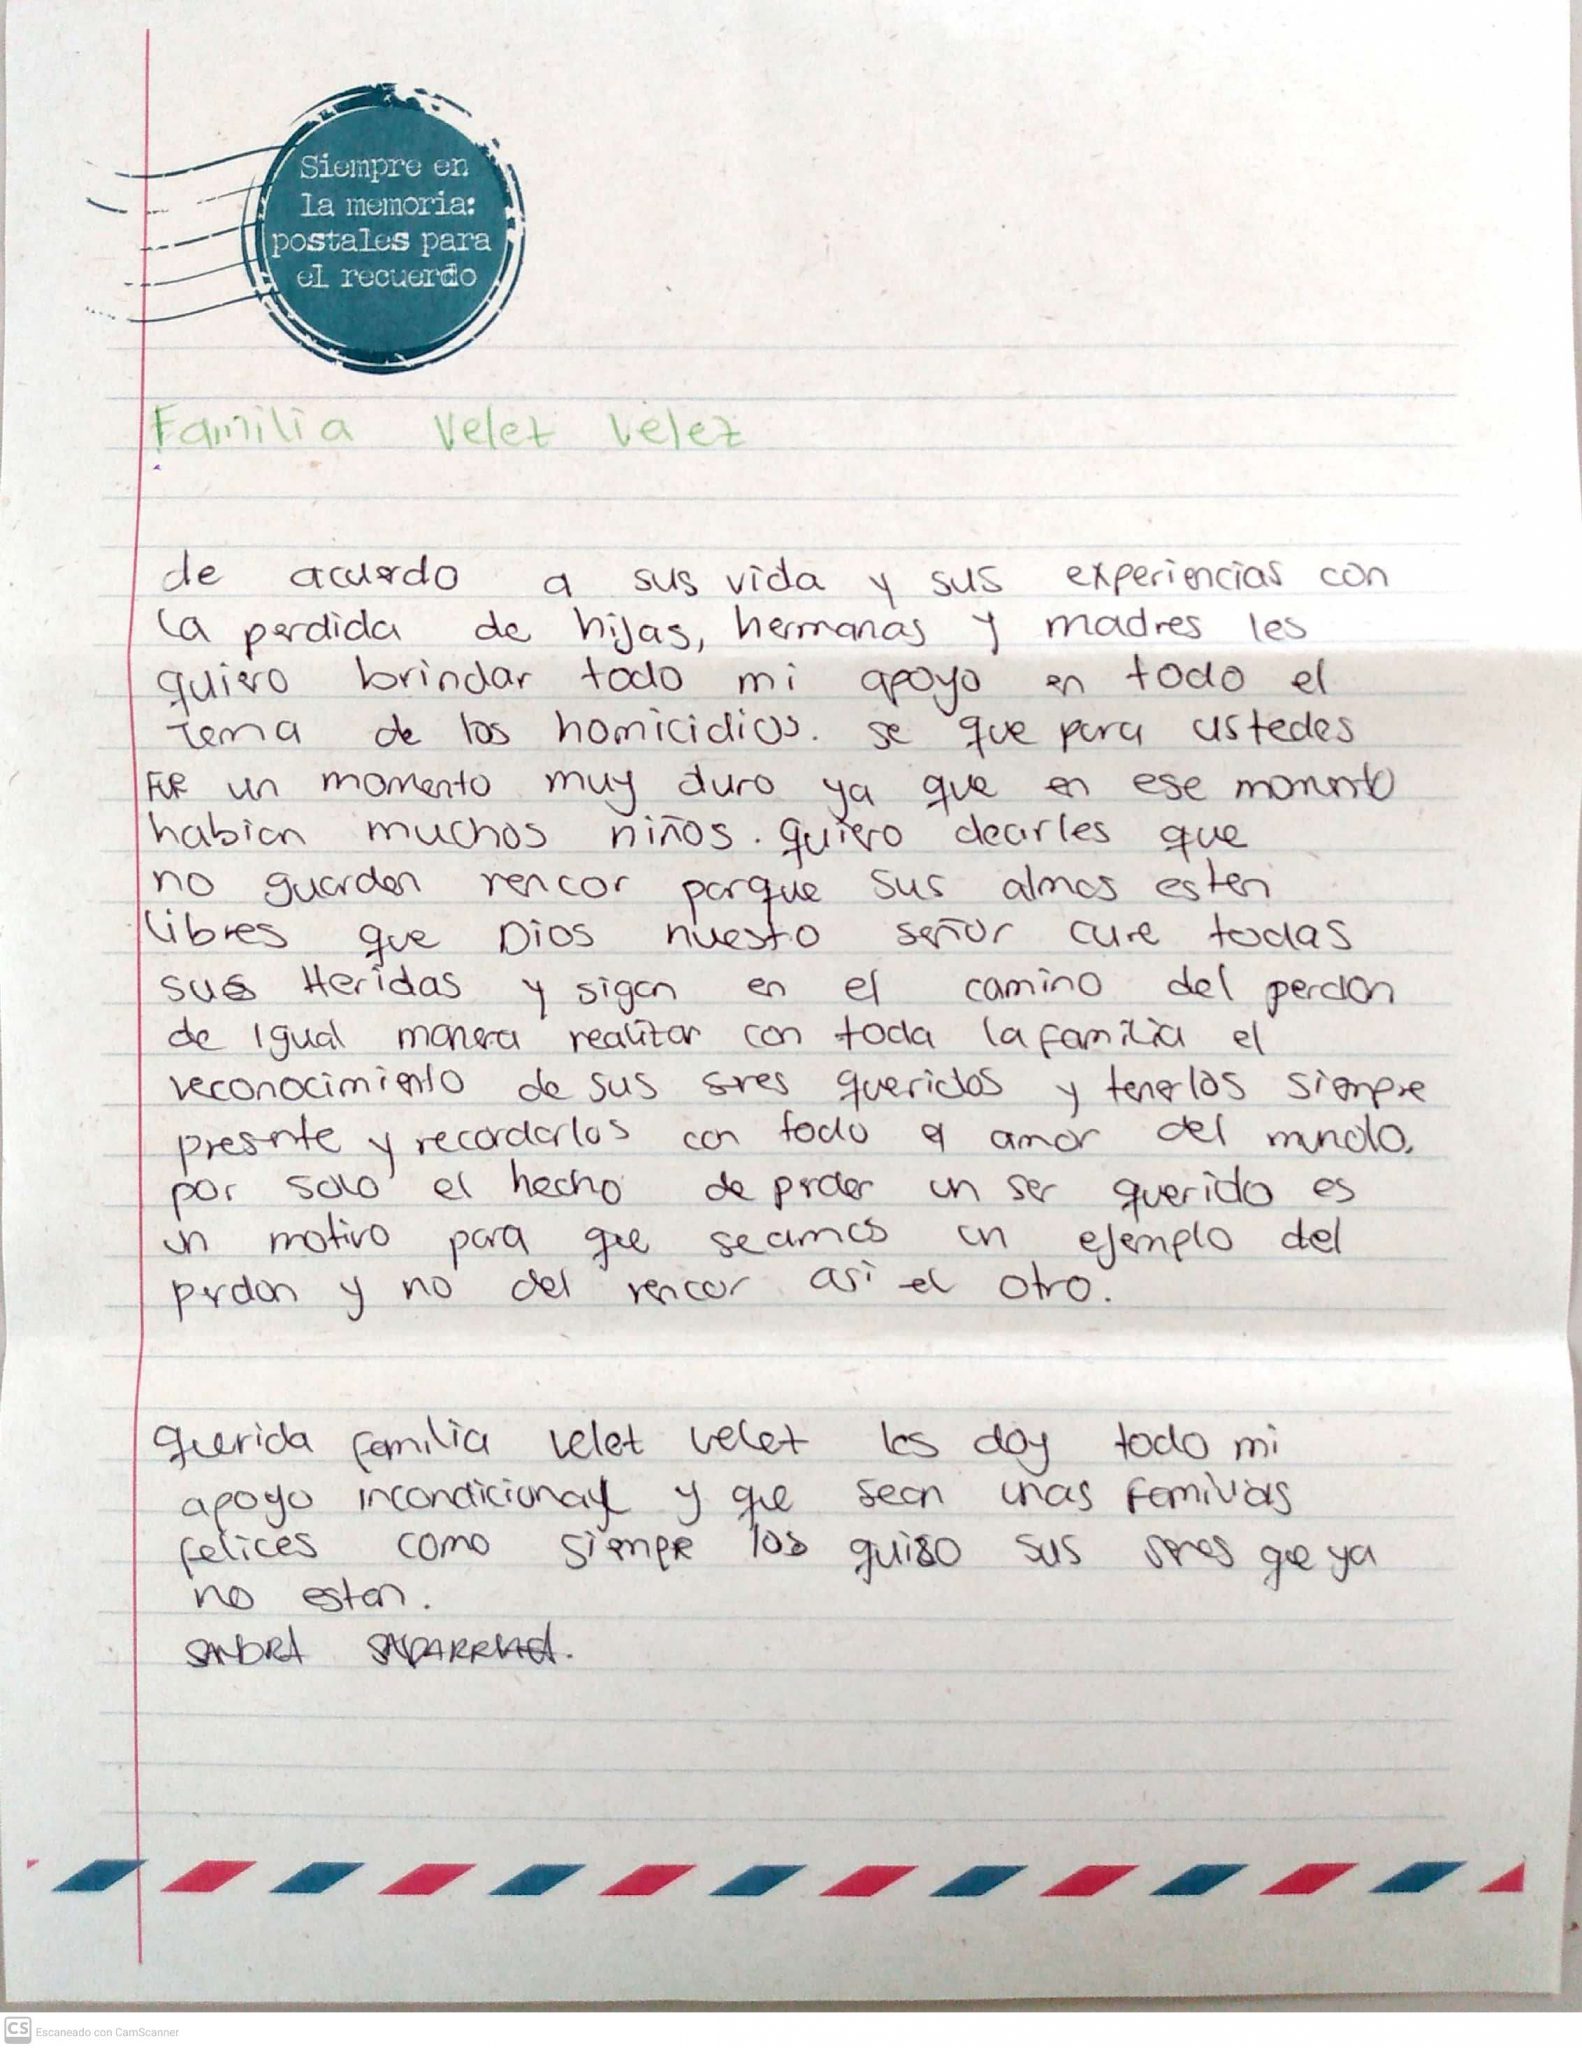 Siempre en
la memoria:
postales para
el recuerdo
Familia Velez Velez
de acuerdo a sus vida y sus experiencias con
la perdida de hijas, hermanas y madres les
quiero brindar todo mi apoyo en todo el
tema de los homicidios. se que para ustedes
fue un momento muy duro ya que en ese momento
habian muchos niños. quiero decirles que
no guarden rencor porque sus almas esten
libres que Dios nuesto señor cure todas
sus Heridas y sigan en el camino del perdon
de igual manera realizar con toda la familia el
reconocimiento de sus seres queridos y tenerlos siempre
presente y recordarlos con todo el amor del mundo.
por solo el hecho de perder un ser querido es
un motivo para que seamos un ejemplo del
perdon y no del rencor asi el otro.
querida familia Velez Velez les doy todo mi
apoyo incondicional y que sean unas familias
felices como siempre los quiso sus seres que ya
no estan.
SANDRA
CS Escaneado con CamScanner